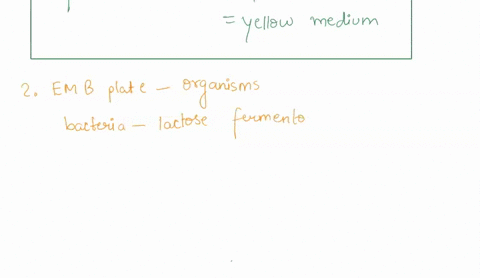 = yellow medium
2. EMB plate - organisms
bacteria - lactose fermento